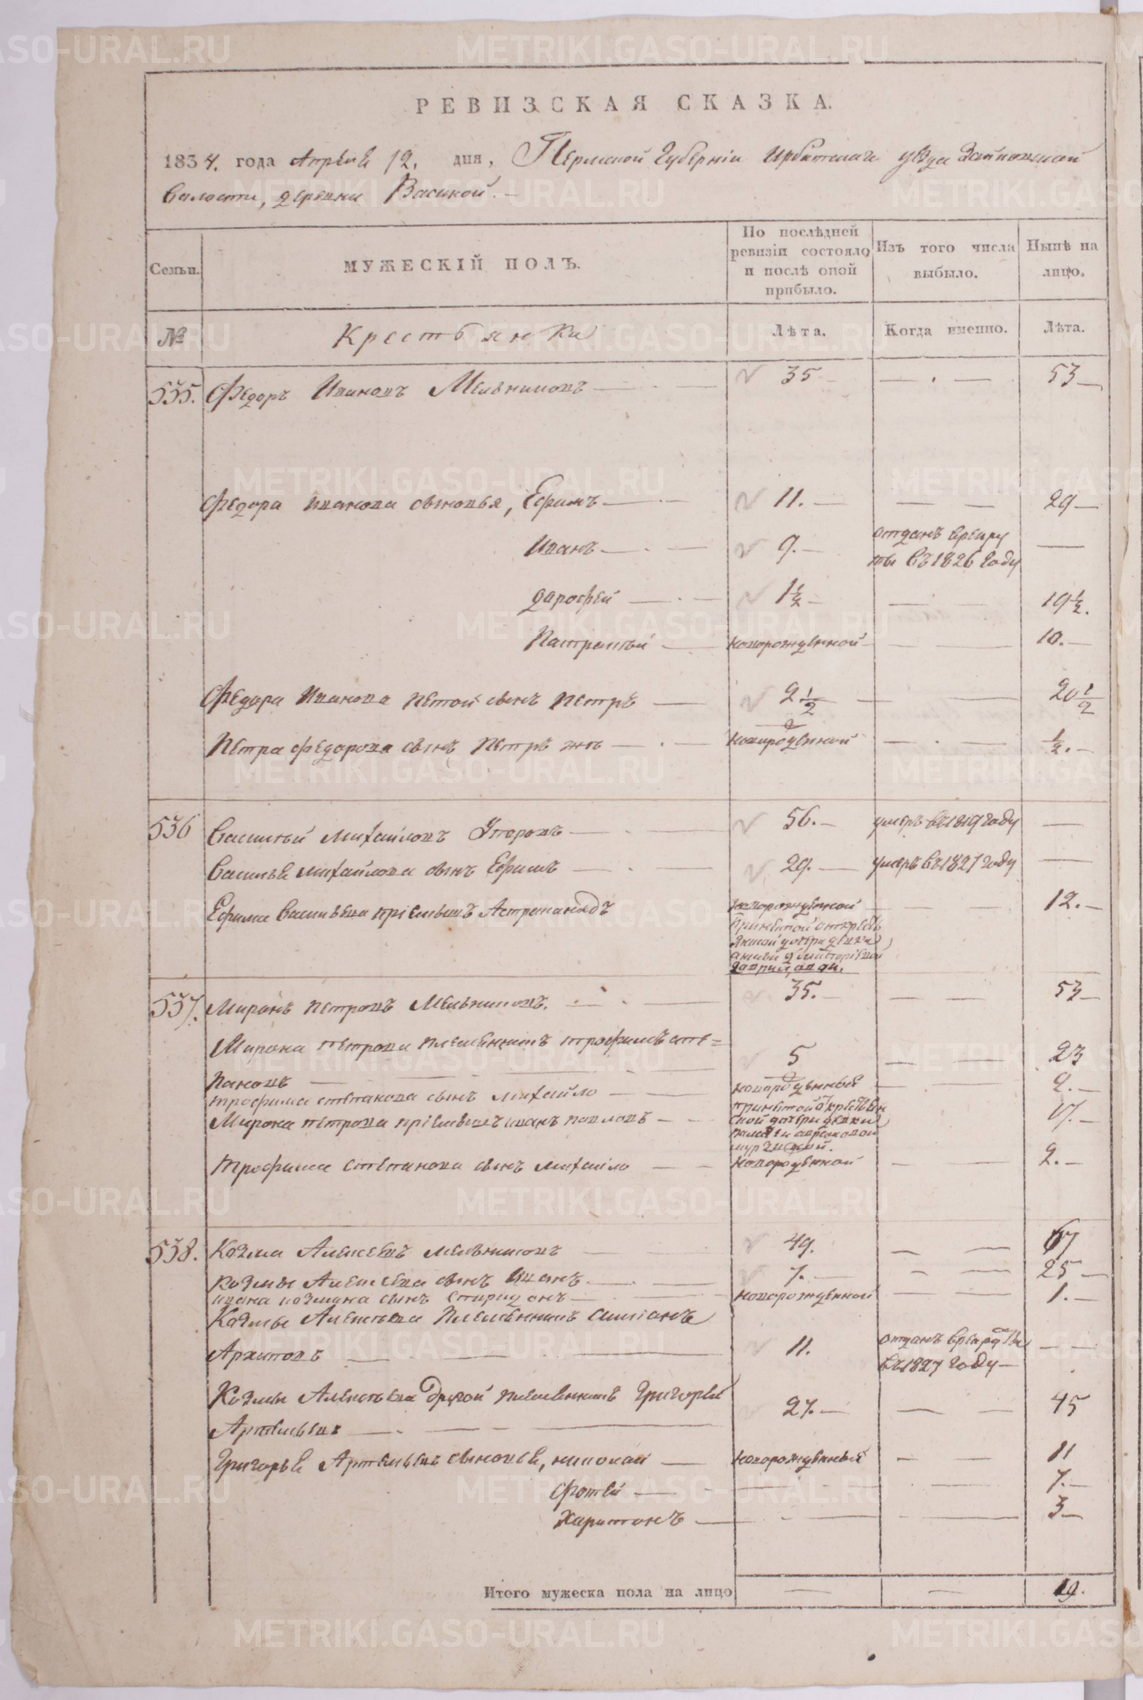 METRIKI.GASO-URAL.RU
РЕВИЗСКАЯ СКАЗКА.
1834. года Апреля 12. дня, Пермской Губернии Ирбитскаго уезда Зайковской
Волости, деревни Васиной. —
Семьи.
МУЖЕСКІЙ ПОЛЪ.
По послѣдней ревизіи состояло и послѣ оной прибыло.
Изъ того числа выбыло.
Нынѣ на лицо.
№
Крестьянки
Лѣта.
Когда именно.
Лѣта.
535. Федоръ Ивановъ Мельниковъ — 35 — 53 —
Федора Иванова сыновья, Ефимъ — 11. — 29 —
Иванъ — 9. — отданъ врекру
ты въ 1826 году —
дарофей — 1 1/2 — 19 1/2.
Новорожденной — 10. —
Федора Иванова пятой сынъ Петръ — 2 1/2 — 20 1/2
Петра Федорова сынъ Петръ же — новорожденной — 1/2. —
536 Василий Михайловъ — 56. — умеръ въ 1819 году —
Василья Михайлова сынъ Ефимъ — 29. — умеръ въ 1827 году —
Ефима Васильева пріемышъ — новорожденной — 12. —
537. Миронъ Петровъ Мельниковъ. — 35. — 53 —
Мирона Петрова племянникъ трофимъ сте=
пановъ — 5 — 23
трофима степанова сынъ михайло — новорожденный — 2. —
Мирона Петрова пріемышъ иванъ павловъ — 17. —
Трофима Степанова сынъ михайло — новорожденной — 2. —
538. Козма Алексеевъ мельниковъ — 49. — 67
Козмы Алексеева сынъ Иванъ — 7. — 25 —
ивана козмина сынъ спиридонъ — новорожденной — 1. —
Козмы Алексеева Племянникъ
Архиповъ — 11. — отданъ врекруты
въ 1827 году —
Козмы Алексеева другой племянникъ Григорей
Артемьевъ — 27. — 45
Григорья Артемьева сыновья, николай — новорожденный — 11
Фотей — 7. —
Харитонъ — 3 —
Итого мужеска пола на лицо — — 19.